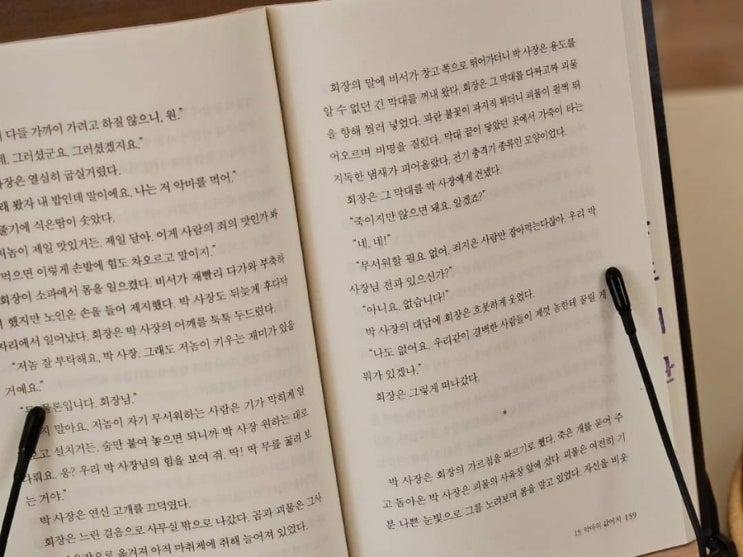 다들 가까이 가려고 하질 않으니, 원."
그러셨군요. 그러셨겠지요."
열심히 굽실거렸다.
왔자 내 밥인데 말이에요. 나는 저 악마를 먹어."
줄기에 식은땀이 솟았다.
제일 맛있거든. 제일 달아. 이게 사람의 죄의 맛인가 봐
먹으면 이렇게 손발에 힘도 차오르고 말이지."
회장이 소파에서 몸을 일으켰다. 비서가 재빨리 다가와 부축하
했지만 노인은 손을 들어 제지했다. 박 사장도 뒤늦게 후다닥
자리에서 일어났다. 회장은 박 사장의 어깨를 툭툭 두드렸다.
"저놈 잘 부탁해요, 박 사장. 그래도 저놈이 키우는 재미가 있을
거예요."
물론입니다. 회장님."
말아요. 저놈이 자기 무서워하는 사람은 기가 막히게 알
설치거든. 숨만 붙여 놓으면 되니까 박 사장 원하는 대로
웅? 우리 박 사장님의 힘을 보여 줘. 딱! 딱 무릎 꿇려 보
는 거야."
박 사장은 연신 고개를 끄덕였다.
회장은 느린 걸음으로 사무실 밖으로 나갔다. 곰과 괴물은 그사
옮겨져 아직 마취제에 취해 늘어져 있었다.
회장의 말에 비서가 창고 쪽으로 뛰어가더니 박 사장은 용도를
알 수 없던 긴 막대를 꺼내 왔다. 회장은 그 막대를 다짜고짜 괴물
을 향해 찔러 넣었다. 파란 불꽃이 파지직 튀더니 괴물이 펄쩍 뛰
어오르며 비명을 질렀다. 막대 끝이 닿았던 곳에서 가죽이 타는
지독한 냄새가 피어올랐다. 전기 충격기 종류인 모양이었다.
회장은 그 막대를 박 사장에게 건넸다.
"죽이지만 않으면 돼요. 알겠죠?"
"네, 네!"
"무서워할 필요 없어. 죄지은 사람만 잡아먹는다잖아. 우리 박
사장님 전과 있으신가?"
"아니요. 없습니다!"
박 사장의 대답에 회장은 흐뭇하게 웃었다.
"나도 없어요. 우리같이 결백한 사람들이 제깟 놈한테 꿀릴 게
뭐가 있겠나."
회장은 그렇게 떠나갔다.
*
박 사장은 회장의 가르침을 따르기로 했다. 죽은 개를 묻어 주
고 돌아온 박 사장은 괴물의 사육장 앞에 섰다. 괴물은 여전히 기
분 나쁜 눈빛으로 그를 노려보며 몸을 말고 있었다. 자신을 비웃
15 악마의 값어치 159